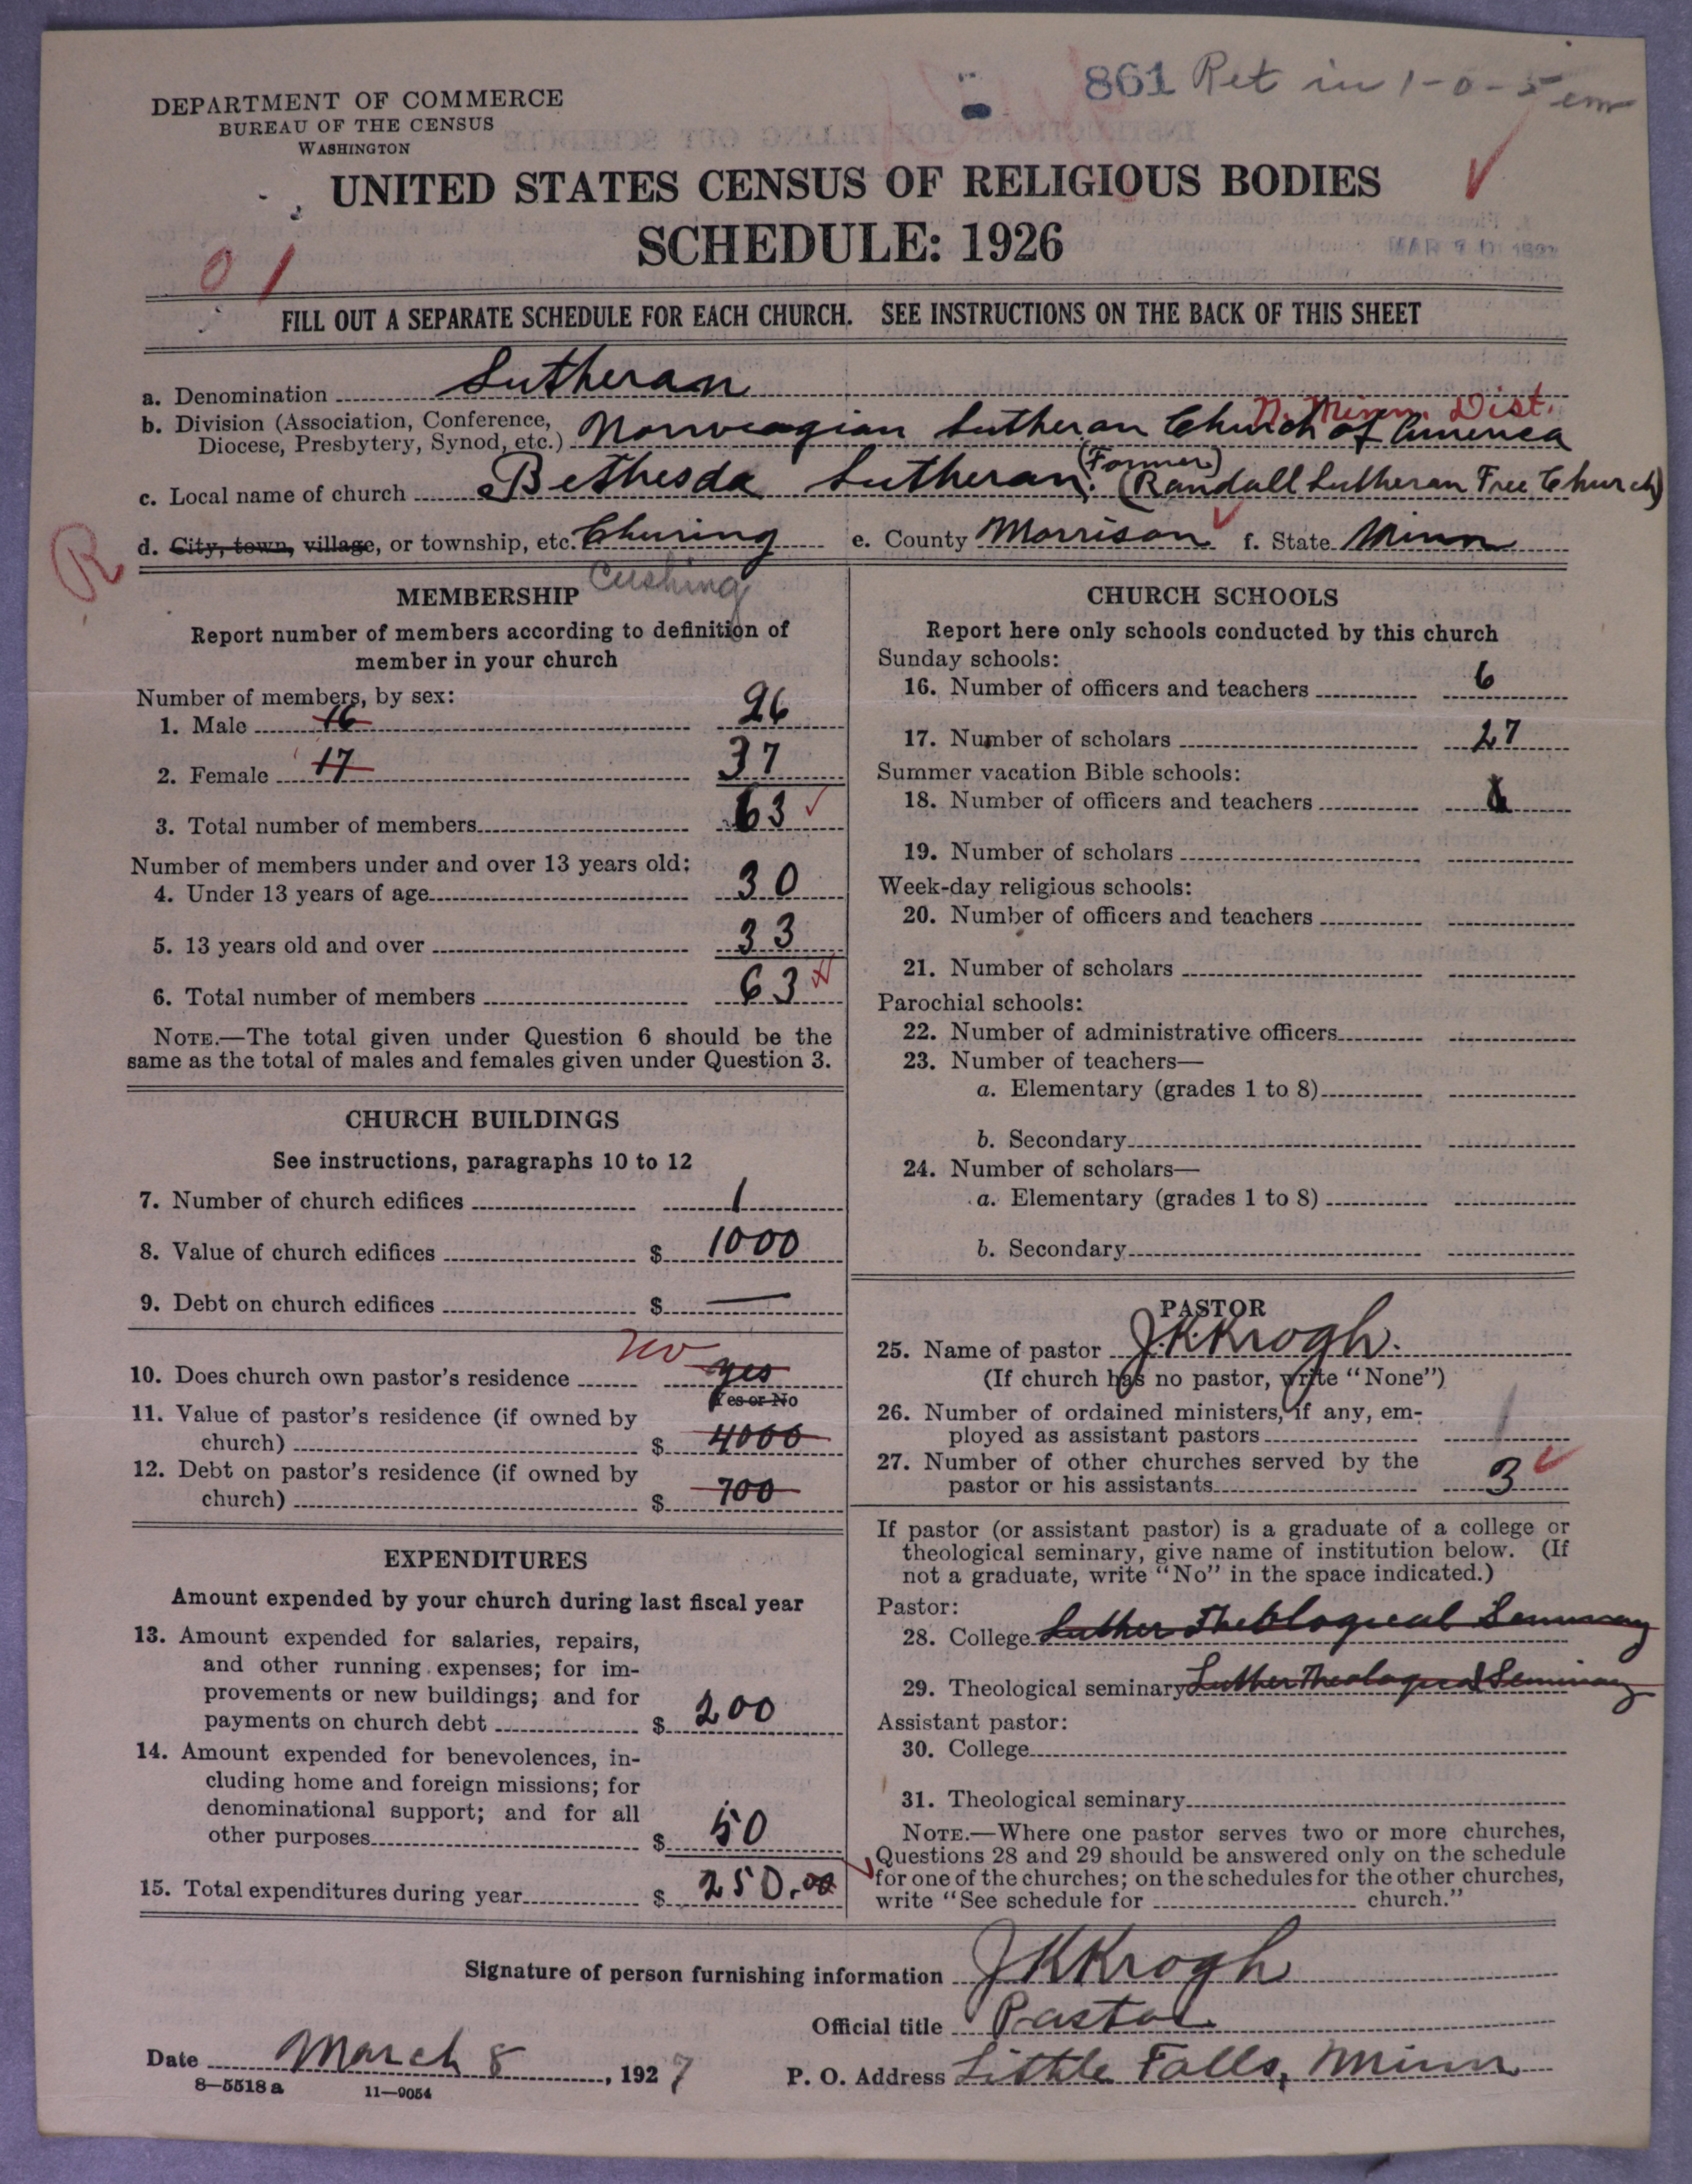 861 Ret in 1-0-5 em
DEPARTMENT OF COMMERCE
BUREAU OF THE CENSUS
WASHINGTON
UNITED STATES CENSUS OF RELIGIOUS BODIES
SCHEDULE: 1926
01
FILL OUT A SEPARATE SCHEDULE FOR EACH CHURCH. SEE INSTRUCTIONS ON THE BACK OF THIS SHEET
a. Denomination Lutheran
N. Minn. Dist.
b. Division (Association, Conference,
Diocese, Presbytery, Synod, etc.) Norwegian Lutheran Church of America
c. Local name of church Bethesda Lutheran. (Former) (Randall Lutheran Free Church)
R
d. City, town, village, or township, etc. e. County Morrison f. State Minn
Cushing
MEMBERSHIP
Report number of members according to definition of
member in your church
Number of members, by sex:
1. Male 16 26
2. Female 17 37
3. Total number of members 63
Number of members under and over 13 years old:
4. Under 13 years of age 30
5. 13 years old and over 33
6. Total number of members 63
NOTE.—The total given under Question 6 should be the
same as the total of males and females given under Question 3.
CHURCH BUILDINGS
See instructions, paragraphs 10 to 12
7. Number of church edifices 1
8. Value of church edifices $ 1000
9. Debt on church edifices $ —
no
10. Does church own pastor's residence yes
Yes or No
11. Value of pastor's residence (if owned by
church) $ 4000
12. Debt on pastor's residence (if owned by
church) $ 700
EXPENDITURES
Amount expended by your church during last fiscal year
13. Amount expended for salaries, repairs,
and other running expenses; for im-
provements or new buildings; and for
payments on church debt $ 200
14. Amount expended for benevolences, in-
cluding home and foreign missions; for
denominational support; and for all
other purposes $ 50
15. Total expenditures during year $ 250.00
CHURCH SCHOOLS
Report here only schools conducted by this church
Sunday schools:
16. Number of officers and teachers 6
17. Number of scholars 27
Summer vacation Bible schools:
18. Number of officers and teachers
19. Number of scholars
Week-day religious schools:
20. Number of officers and teachers
21. Number of scholars
Parochial schools:
22. Number of administrative officers
23. Number of teachers—
a. Elementary (grades 1 to 8)
b. Secondary
24. Number of scholars—
a. Elementary (grades 1 to 8)
b. Secondary
PASTOR
25. Name of pastor J.K.Krogh.
(If church has no pastor, write "None")
26. Number of ordained ministers, if any, em-
ployed as assistant pastors /
27. Number of other churches served by the
pastor or his assistants 3
If pastor (or assistant pastor) is a graduate of a college or
theological seminary, give name of institution below. (If
not a graduate, write "No" in the space indicated.)
Pastor:
28. College Luther Theological Seminary
29. Theological seminary Luther Theological Seminary
Assistant pastor:
30. College
31. Theological seminary
NOTE.—Where one pastor serves two or more churches,
Questions 28 and 29 should be answered only on the schedule
for one of the churches; on the schedules for the other churches,
write "See schedule for church."
Signature of person furnishing information JKKrogh
Official title Pastor
Date March 8, 1927 P. O. Address Little Falls, Minn
8—5518a 11—9054